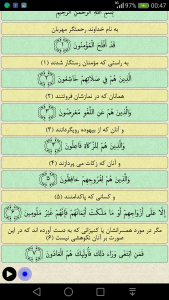 00:47
بسم الله الرحمن الرحیم
به نام خداوند رحمتگر مهربان
قَدْ أَفْلَحَ الْمُؤْمِنُونَ ﴿١﴾
به راستی که مؤمنان رستگار شدند (۱)
الَّذِينَ هُمْ فِي صَلَاتِهِمْ خَاشِعُونَ ﴿٢﴾
همانان که در نمازشان فروتنند (۲)
وَالَّذِينَ هُمْ عَنِ اللَّغْوِ مُعْرِضُونَ ﴿٣﴾
و آنان که از بیهوده رویگردانند (۳)
وَالَّذِينَ هُمْ لِلزَّكَاةِ فَاعِلُونَ ﴿٤﴾
و آنان که زکات می پردازند (۴)
وَالَّذِينَ هُمْ لِفُرُوجِهِمْ حَافِظُونَ ﴿٥﴾
و کسانی که پاکدامنند (۵)
إِلَّا عَلَى أَزْوَاجِهِمْ أَوْ مَا مَلَكَتْ أَيْمَانُهُمْ فَإِنَّهُمْ غَيْرُ مَلُومِينَ ﴿٦﴾
مگر در مورد همسرانشان یا کنیزانی که به دست آورده اند که در این
صورت بر آنان نکوهشی نیست (۶)
فَمَنِ ابْتَغَى وَرَاءَ ذَلِكَ فَأُولَئِكَ هُمُ الْعَادُونَ ﴿٧﴾